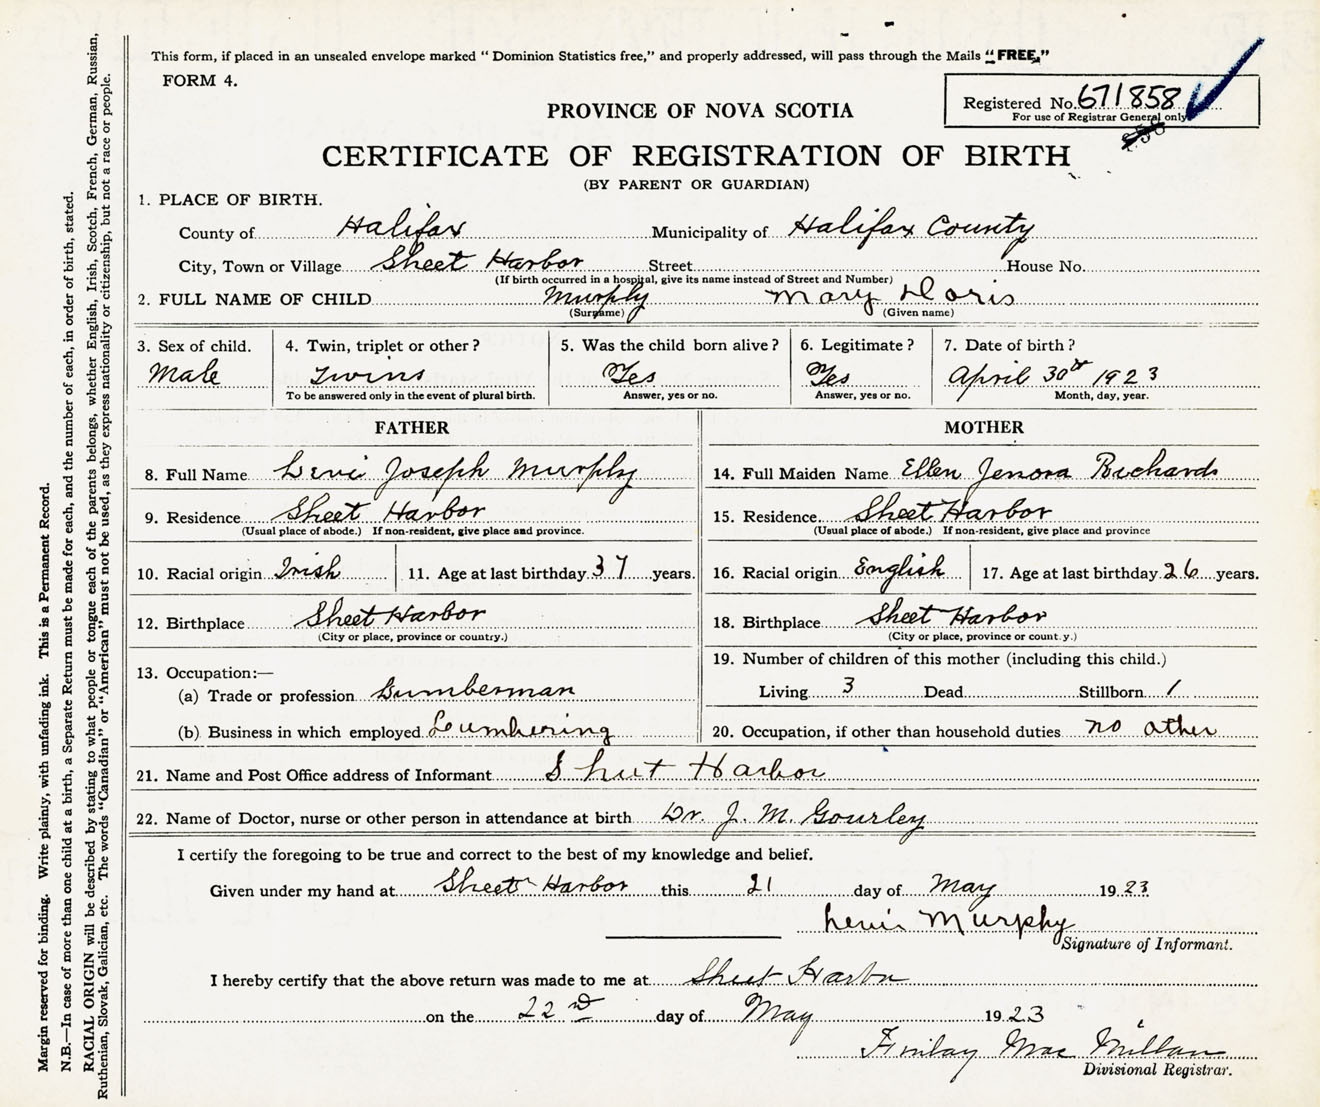 This form, if placed in an unsealed envelope marked "Dominion Statistics free," and properly addressed, will pass through the Mails "FREE."
FORM 4.
Registered No. 671858
For use of Registrar General only
PROVINCE OF NOVA SCOTIA
CERTIFICATE OF REGISTRATION OF BIRTH
(BY PARENT OR GUARDIAN)
1. PLACE OF BIRTH.
County of Halifax Municipality of Halifax County
City, Town or Village Sheet Harbor Street House No.
(If birth occurred in a hospital, give its name instead of Street and Number)
2. FULL NAME OF CHILD Murphy Mary Doris
(Surname) (Given name)
3. Sex of child. 4. Twin, triplet or other? 5. Was the child born alive? 6. Legitimate? 7. Date of birth?
Male Twins Yes Yes April 30th 1923
To be answered only in the event of plural birth. Answer, yes or no. Answer, yes or no. Month, day, year.
FATHER MOTHER
8. Full Name Levi Joseph Murphy 14. Full Maiden Name Ellen Jenora Richards
9. Residence Sheet Harbor 15. Residence Sheet Harbor
(Usual place of abode.) If non-resident, give place and province. (Usual place of abode.) If non-resident, give place and province
10. Racial origin Irish 11. Age at last birthday 37 years. 16. Racial origin English 17. Age at last birthday 26 years.
12. Birthplace Sheet Harbor 18. Birthplace Sheet Harbor
(City or place, province or country.) (City or place, province or count.y.)
13. Occupation:— 19. Number of children of this mother (including this child.)
(a) Trade or profession Lumberman Living 3 Dead Stillborn 1
(b) Business in which employed Lumbering 20. Occupation, if other than household duties no other
21. Name and Post Office address of Informant Sheet Harbor
22. Name of Doctor, nurse or other person in attendance at birth Dr. J. M. Gourley
I certify the foregoing to be true and correct to the best of my knowledge and belief.
Given under my hand at Sheet Harbor this 21 day of May 1923
Levi Murphy
Signature of Informant.
I hereby certify that the above return was made to me at Sheet Harbor
on the 22nd day of May 1923
Finlay MacMillan
Divisional Registrar.
Margin reserved for binding. Write plainly, with unfading ink. This is a Permanent Record.
N.B.—In case of more than one child at a birth, a Separate Return must be made for each, and the number of each, in order of birth, stated.
RACIAL ORIGIN will be described by stating to what people or tongue each of the parents belongs, whether English, Irish, Scotch, French, German, Russian,
Ruthenian, Slovak, Galician, etc. The words "Canadian" or "American" must not be used, as they express nationality or citizenship, but not a race or people.